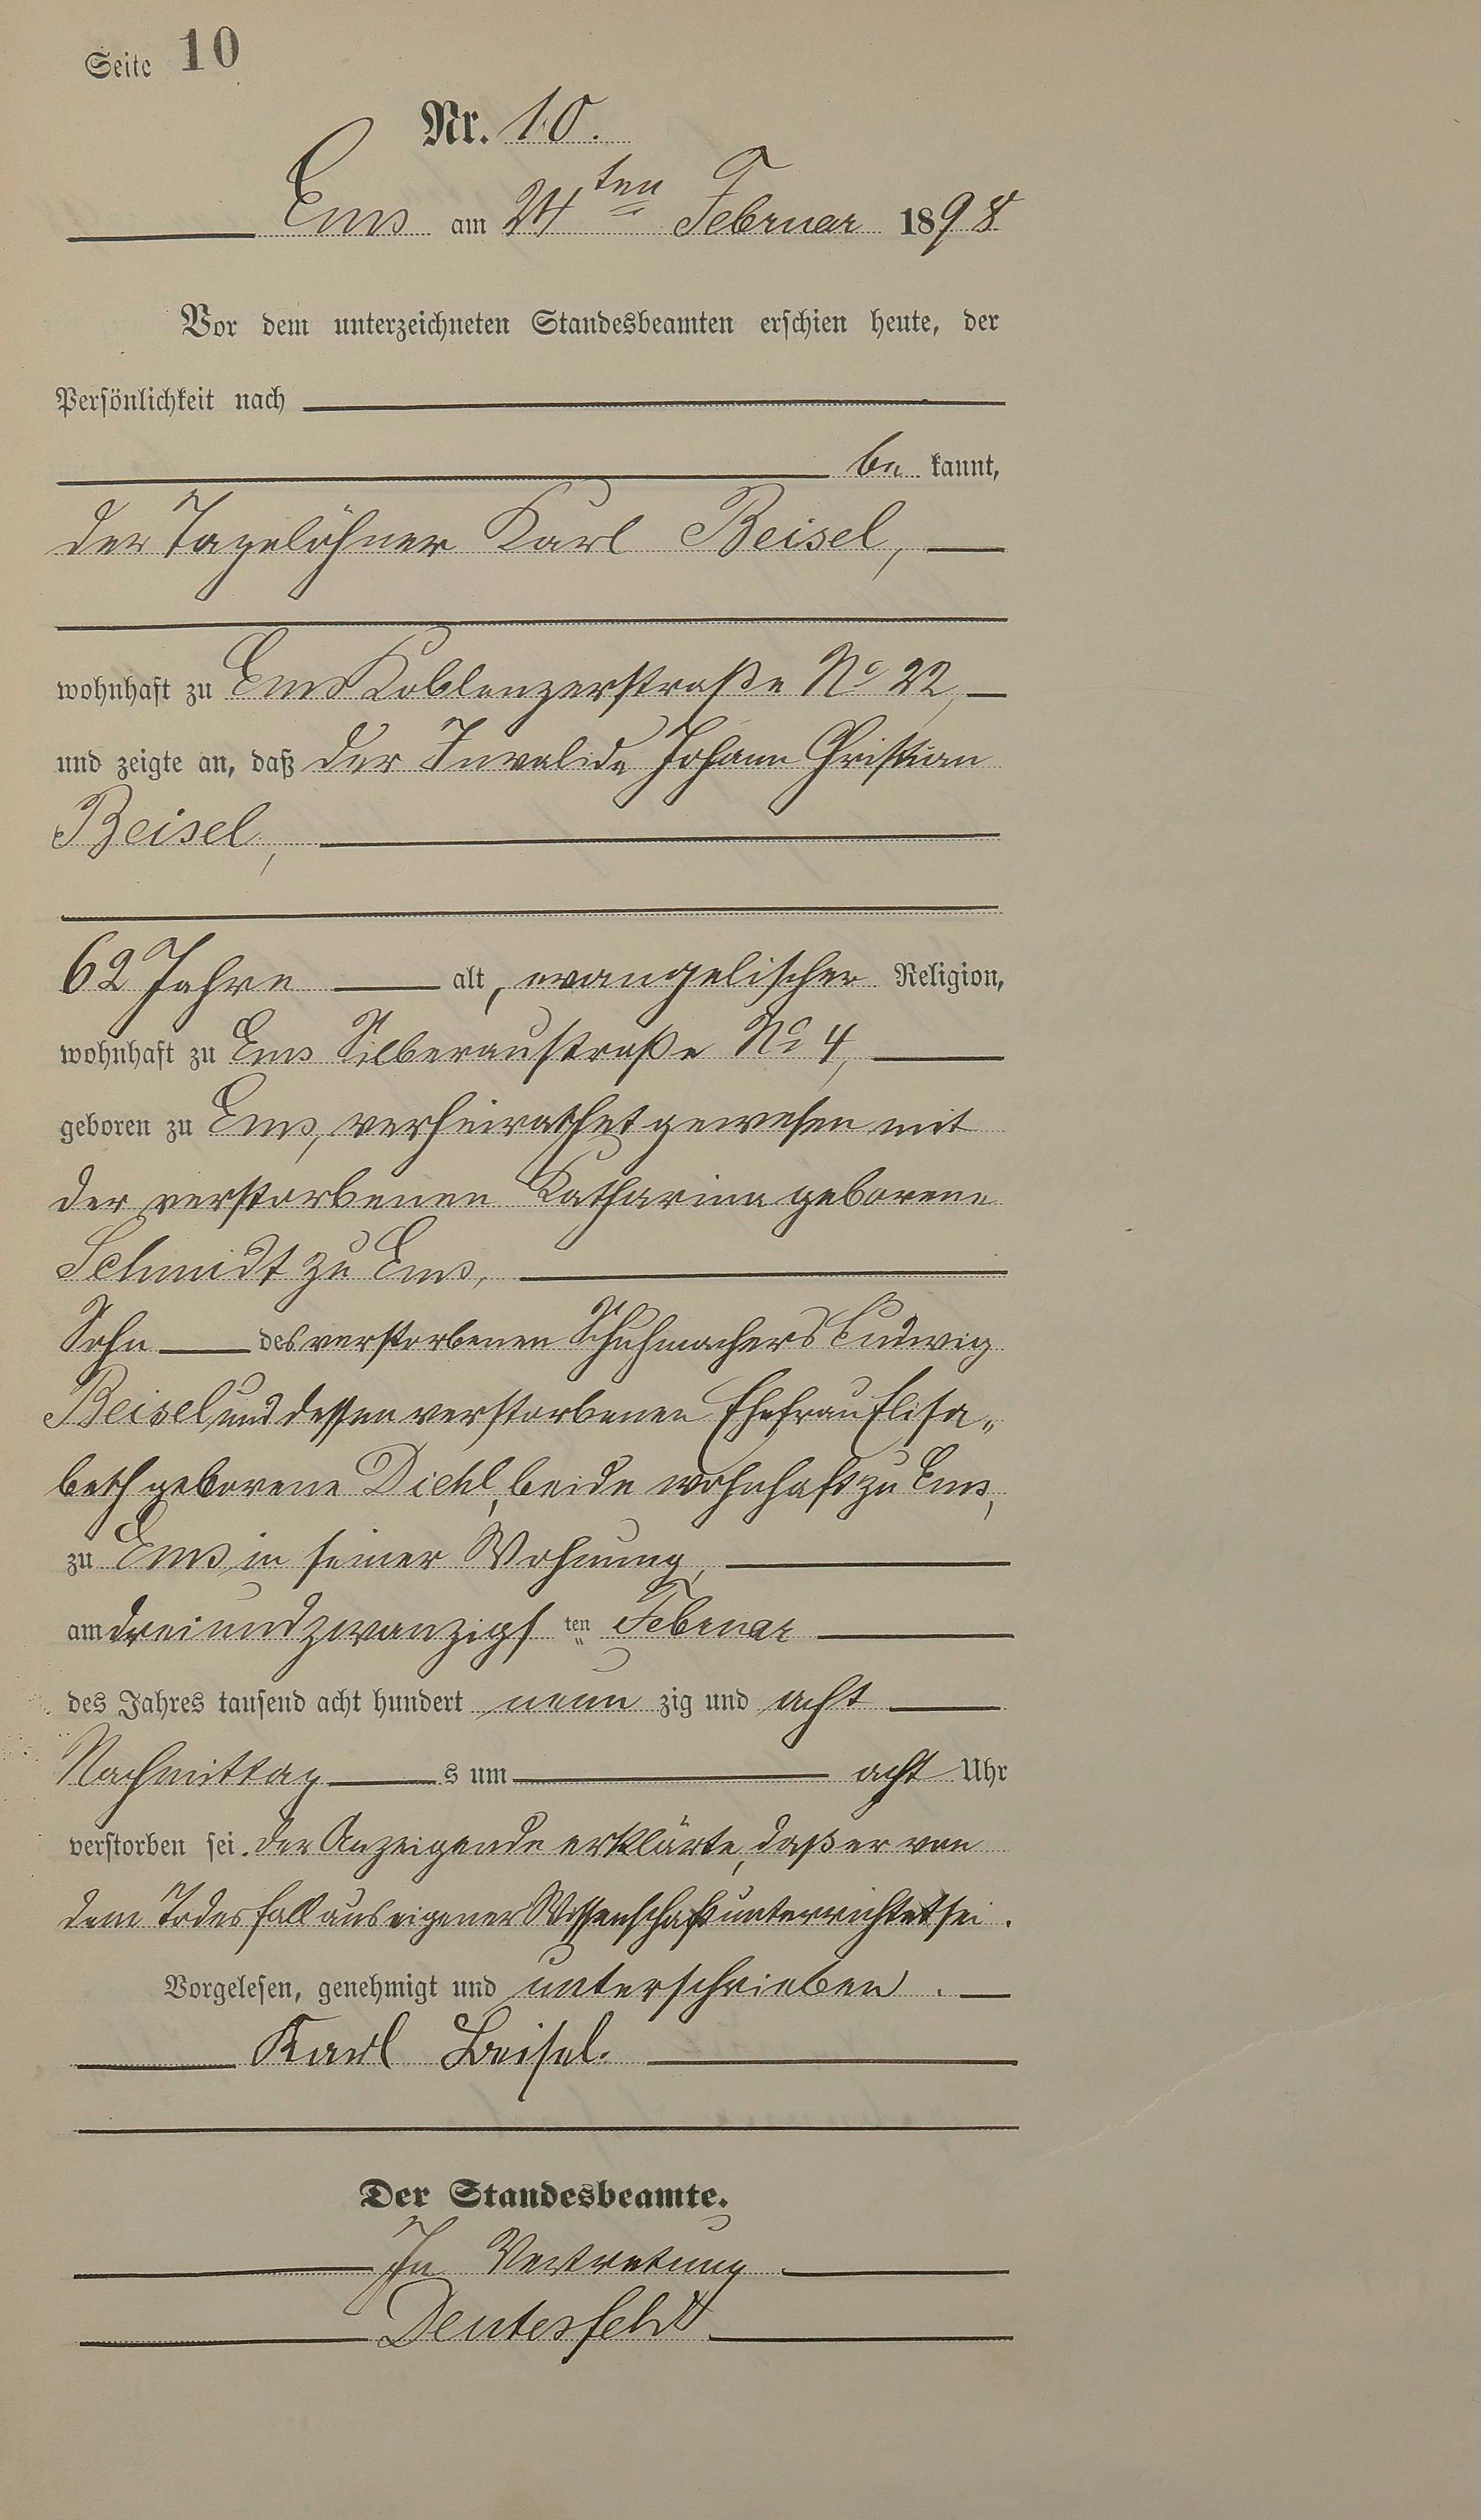 Seite 10
Nr. 10.
Ems am 24ten Februar 1898
Vor dem unterzeichneten Standesbeamten erschien heute, der
Persönlichkeit nach
be kannt,
der Tagelöhner Karl Beisel,
wohnhaft zu Ems Koblenzerstraße No 22,
und zeigte an, daß der Invalide Johann Christian
Beisel,
62 Jahre alt, evangelischer Religion,
wohnhaft zu Ems Silberaustraße No 4,
geboren zu Ems, verheirathet gewesen mit
der verstorbenen Katharina geborene
Schmidt zu Ems,
Sohn des verstorbenen Schuhmachers Ludwig
Beisel und dessen verstorbenen Ehefrau Elisa„
beth geborene Diehl, beide wohnhaft zu Ems,
zu Ems, in seiner Wohnung,
am dreiundzwanzigsten Februar
des Jahres tausend acht hundert neun zig und acht
Nachmittag s um acht Uhr
verstorben sei. Der Anzeigende erklärte, daß er von
dem Todesfall aus eigener Wissenschaft unterrichtet sei.
Vorgelesen, genehmigt und unterschrieben.
Karl Beisel.
Der Standesbeamte.
In Vertretung